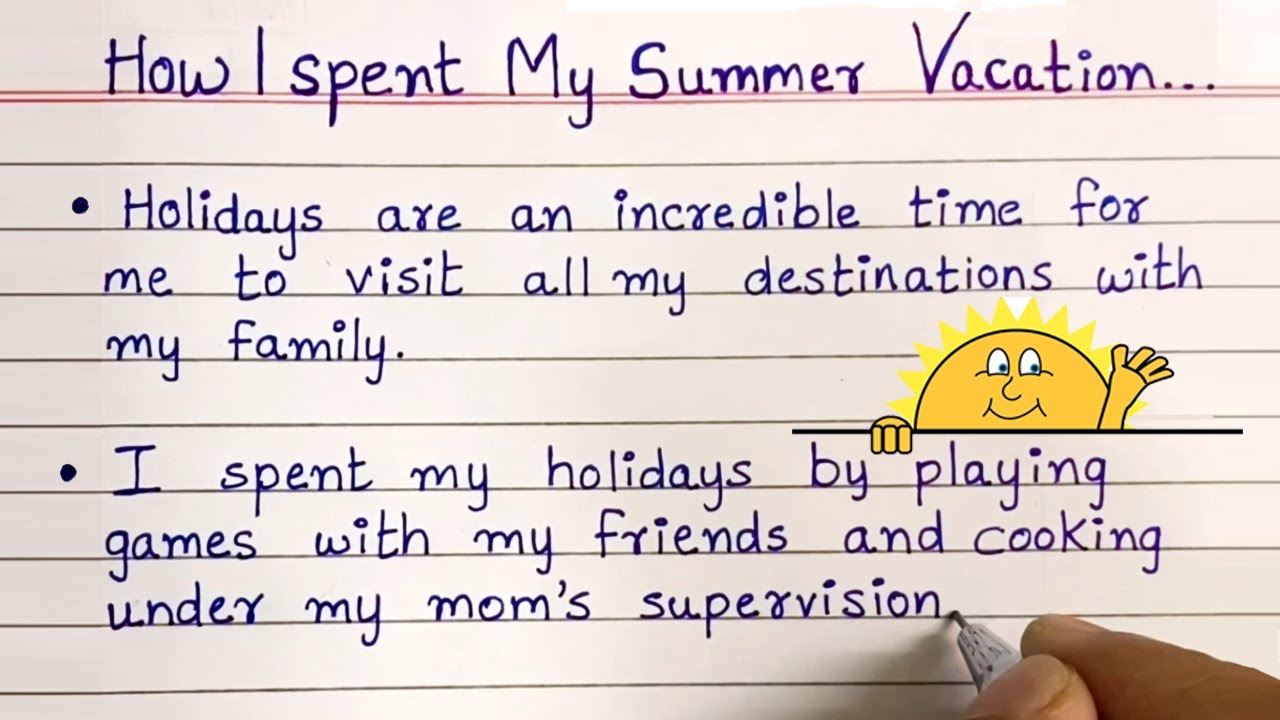 How I spent My Summer Vacation...
• Holidays are an incredible time for
me to visit all my destinations with
my family.
• I spent my holidays by playing
games with my friends and cooking
under my mom's supervision.